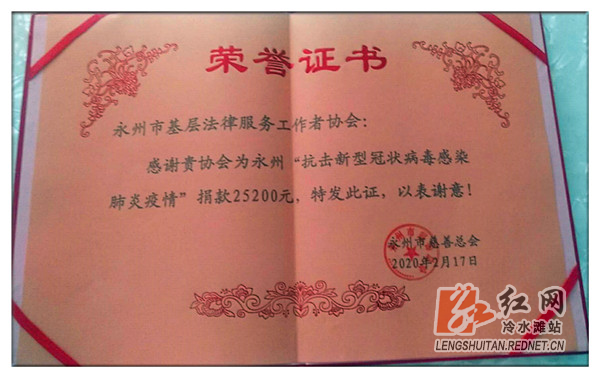 荣誉证书
永州市基层法律服务工作者协会：
感谢贵协会为永州“抗击新型冠状病毒感染
肺炎疫情”捐款25200元，特发此证，以表谢意！
永州市慈善总会
2020年2月17日
红网
冷水滩站
LENGSHUITAN.REDNET.CN